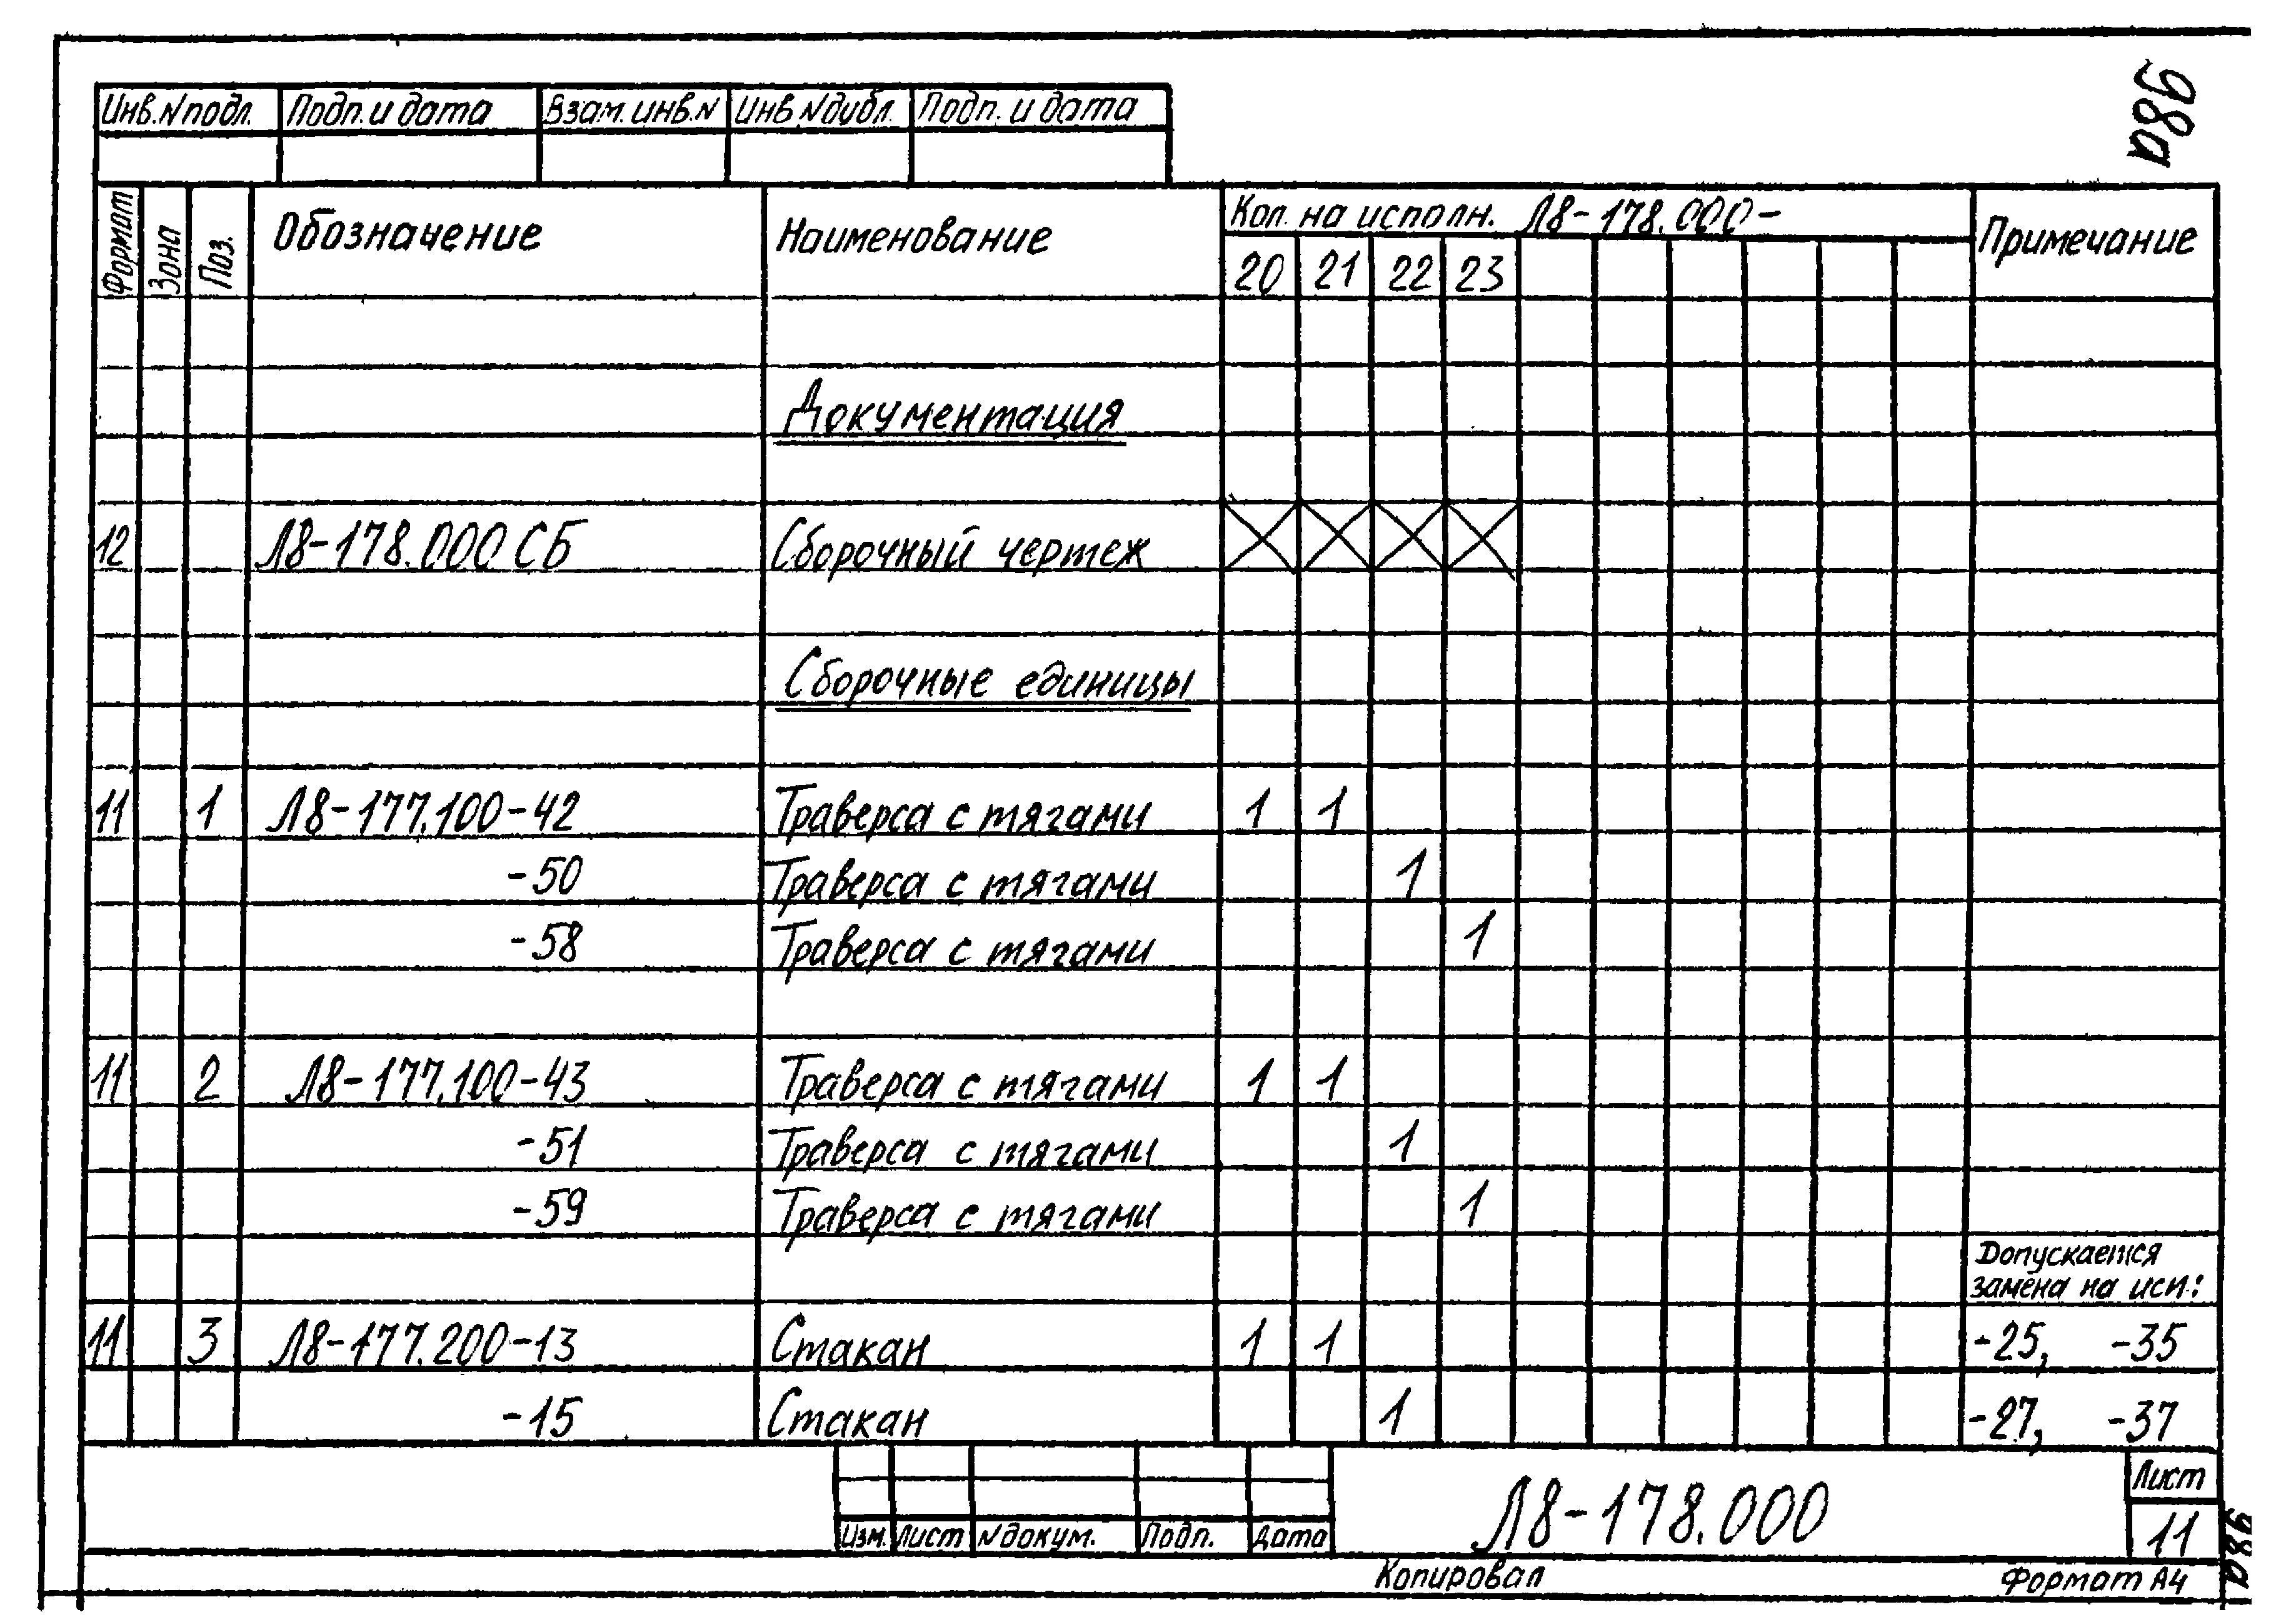 98а
Инв.№подл. Подп. и дата Взам. инв.№ Инв.№дубл. Подп. и дата
Формат Зона Поз. Обозначение Наименование Кол. на исполн. Л8-178.000- Примечание
20 21 22 23
Документация
12 Л8-178.000 СБ Сборочный чертеж
Сборочные единицы
11 1 Л8-177.100-42 Траверса с тягами 1 1
-50 Траверса с тягами 1
-58 Траверса с тягами 1
11 2 Л8-177.100-43 Траверса с тягами 1 1
-51 Траверса с тягами 1
-59 Траверса с тягами 1
Допускается
замена на исп.:
11 3 Л8-177.200-13 Стакан 1 1 -25, -35
-15 Стакан 1 -27, -37
Л8-178.000 Лист
Изм. Лист №докум. Подп. Дата 11
Копировал Формат А4
98а